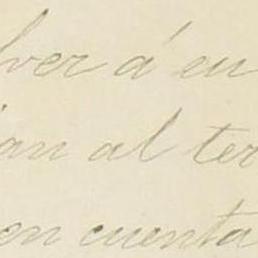 lver á en
ian al ter
en cuenta